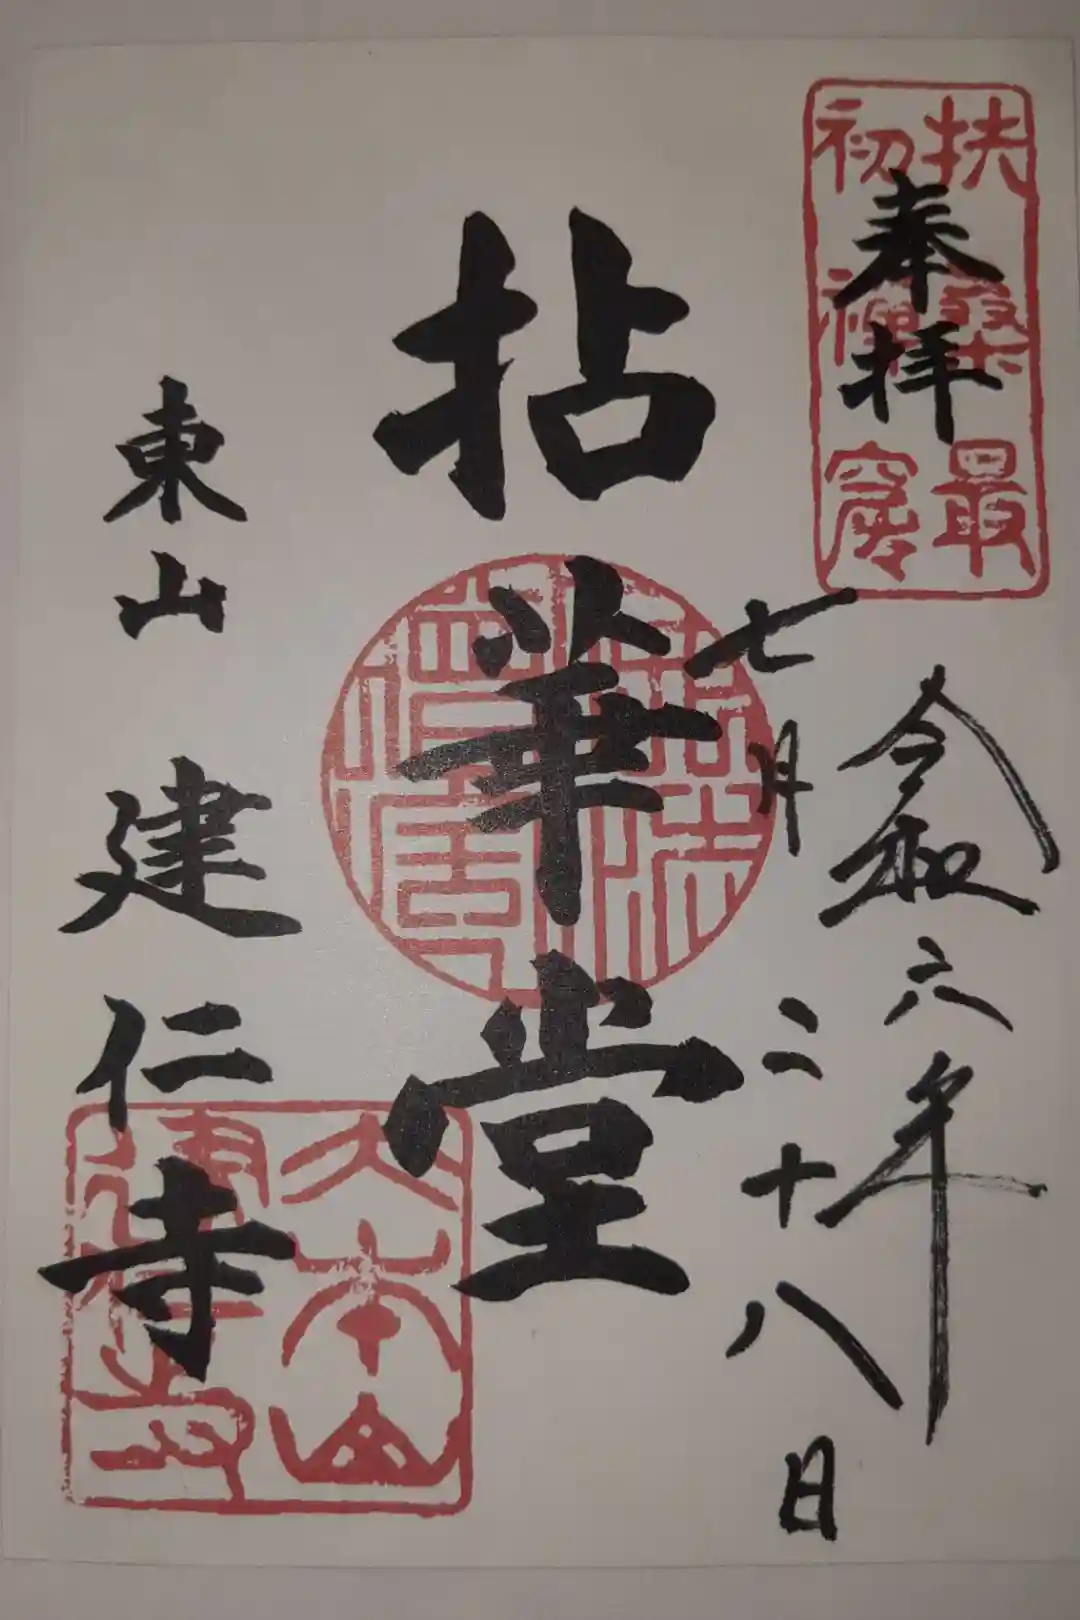 扶桑最
初禅窟
奉拝
令和六年
七月二十八日
拈華堂
東山 建仁寺
大本山
建仁寺